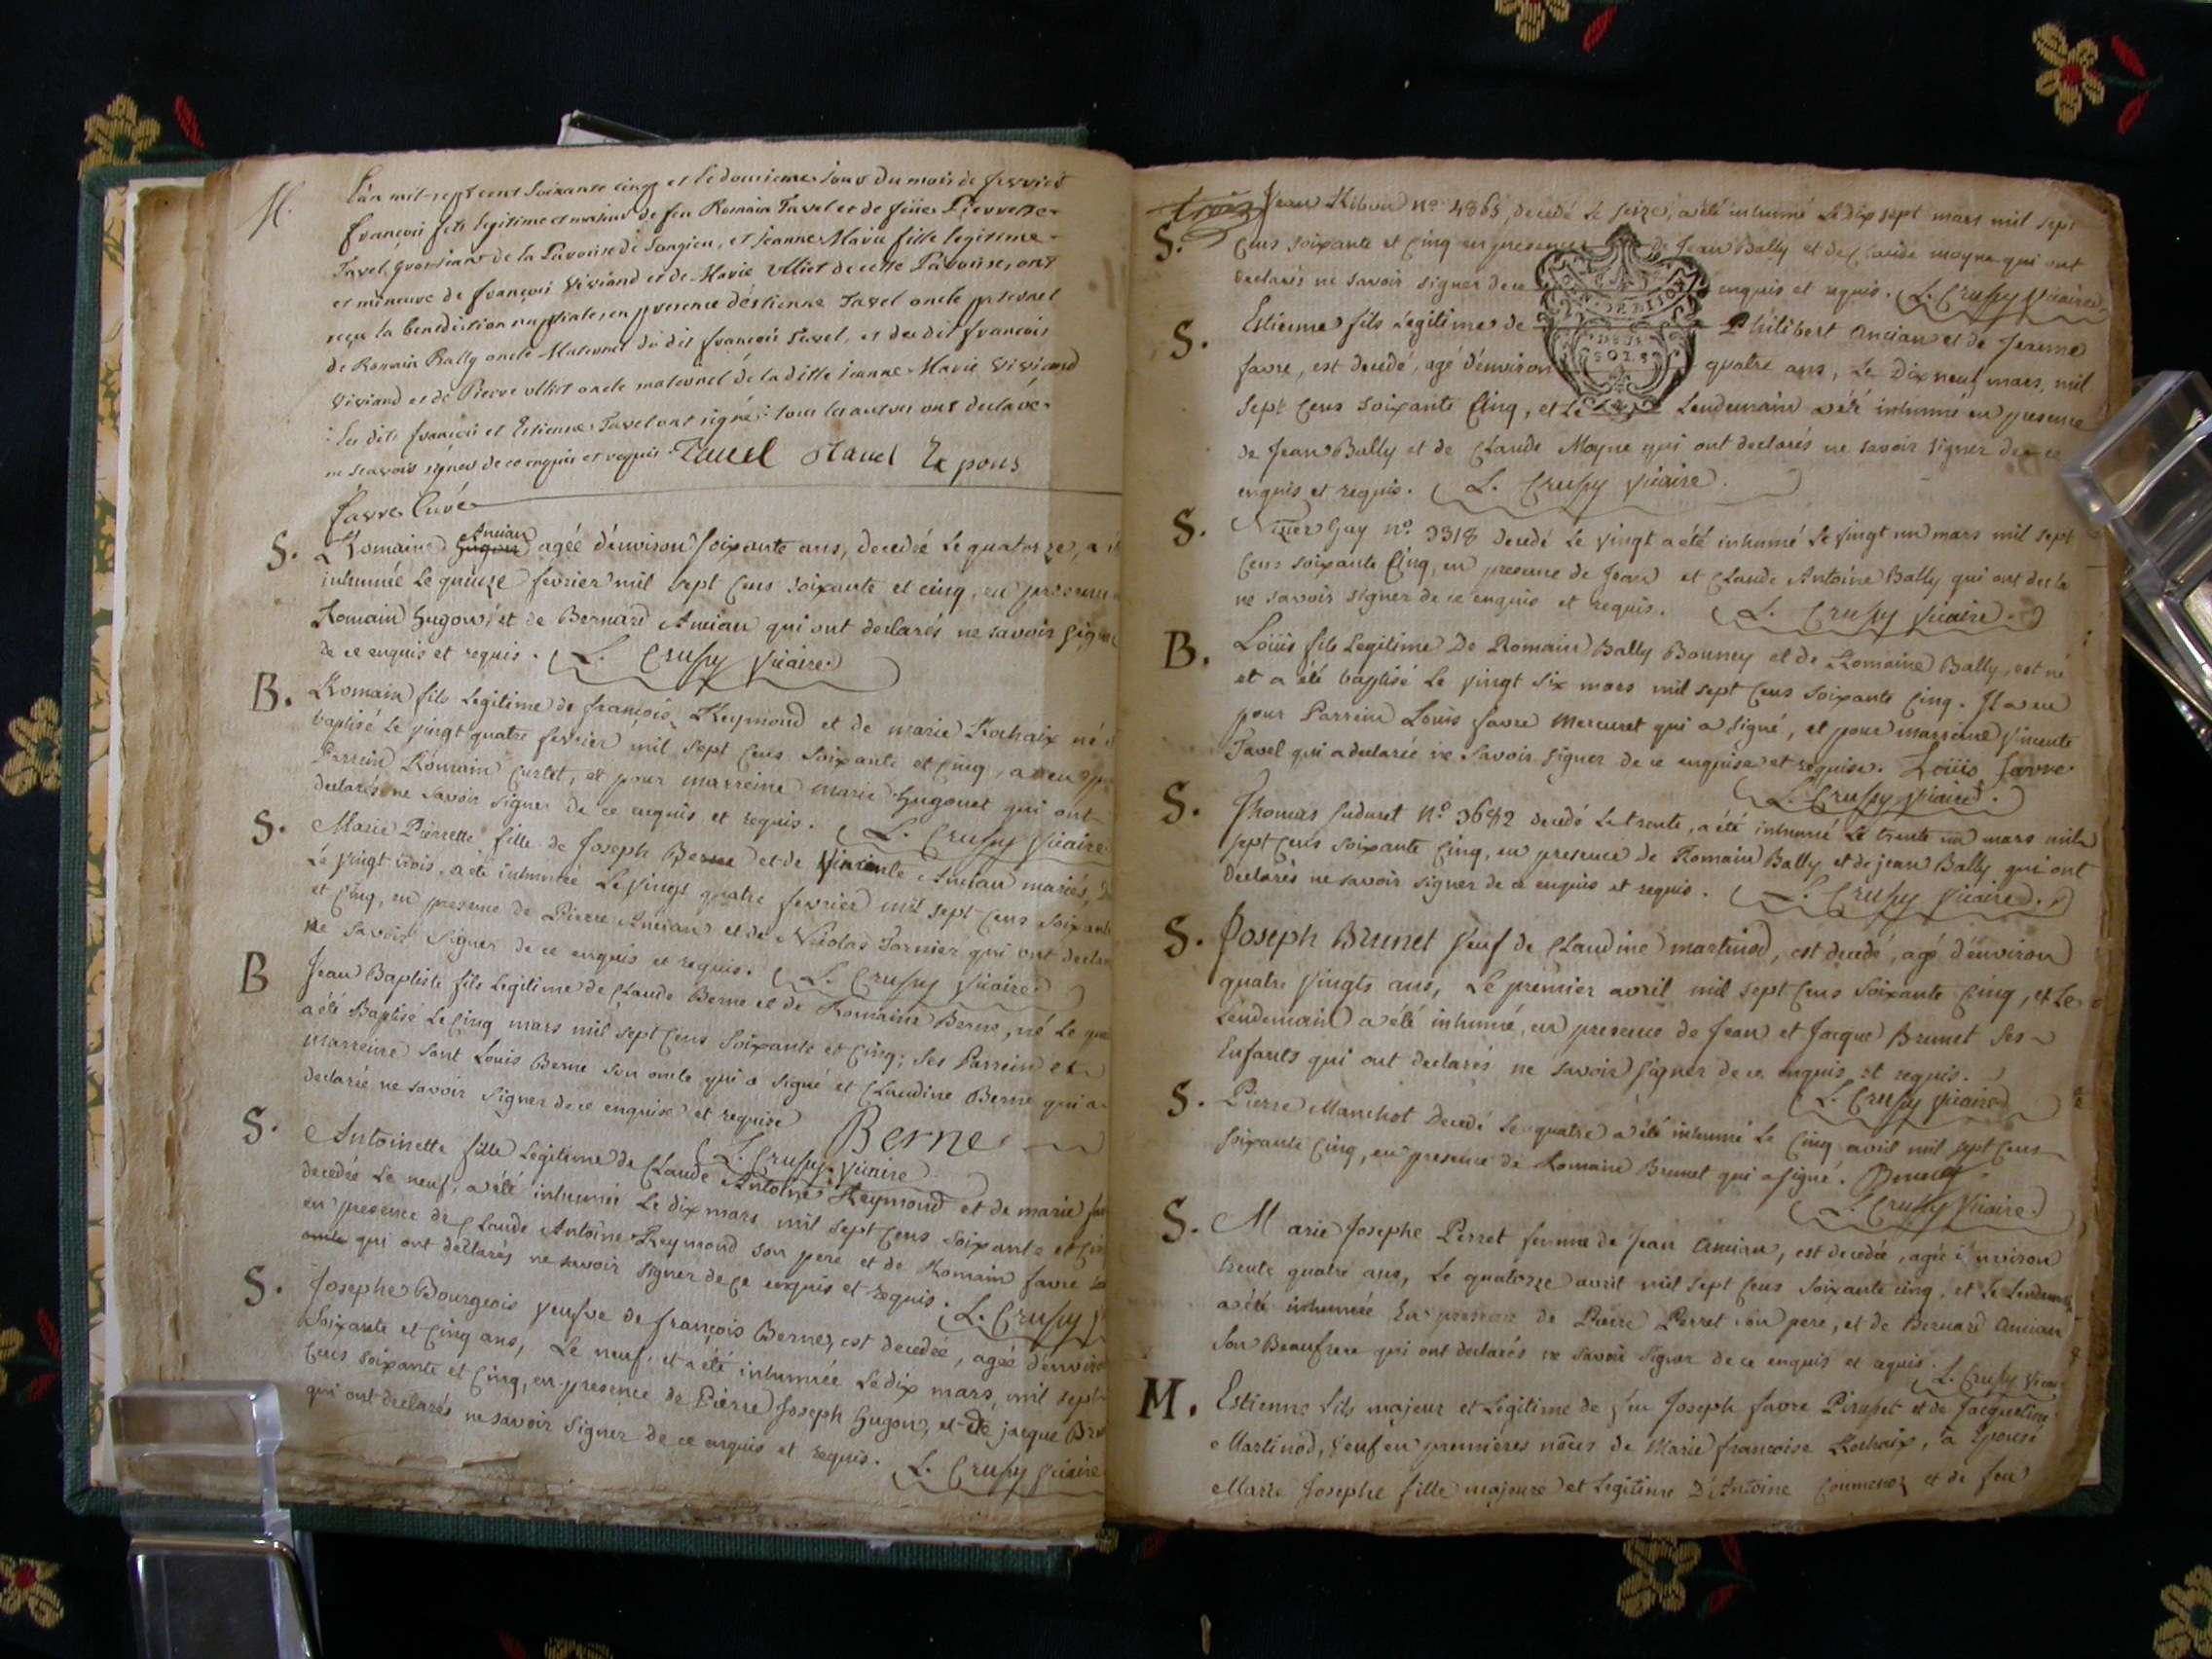 M.
L'an mil-sept cent soixante cinq et le douzieme jour du mois de fevrier
françois fils legitime et majeur de feu Romain Tavel et de feüe Pierrette
Tavel, de la Paroisse de Songieu, et jeanne Marie fille legitime
et mineure de françois Viviand et de Marie Ulliet de cette Paroisse, ont
reçu la benediction nuptiale, en presence d'éstienne Tavel oncle paternel
de Romain Bally oncle Maternel du dit françois Tavel, et du dit françois
Viviand et de Pierre ulliet oncle maternel de la ditte jeanne Marie Viviand
: Les dits françois et Estienne Tavel ont signé : tous les autres ont declaré
ne scavoir signer de ce enquis et requis. Tavel Tavel
favre Curé
S. Romaine Ancian agée d'environ soixante ans, decedée le quatorze, a été
inhumée le quinze fevrier mil sept cens soixante et cinq, en presence
Romain Hugon, et de Bernard Ancian qui ont declarés ne savoir signer
de ce enquis et requis. L. Crussy Vicaire.
B. Romain fils Legitime de françois Reymond et de marie Rochaix né
baptisé le vingt quatre fevrier mil sept cens soixante et cinq, a eu p
Parrein Romain Curtet, et pour marreine marie Hugonet qui ont
declarés ne savoir signer de ce enquis et requis. L. Crussy Vicaire
S. Marie Pierrette fille de Joseph Berne et de Vincente Ancian mariés,
Le vingt trois, a été inhumée Le vingt quatre fevrier mil sept cens soixante
et cinq, en presence de Pierre Ancian et de Nicolas Fornier qui ont declar
ne savoir signer de ce enquis et requis. L. Crussy Vicaire
B Jean Baptiste fils Legitime de Claude Berne et de Romaine Berne, né Le qua
a été Baptisé Le Cinq mars mil sept cens soixante et cinq; ses Parrein et
marreine sont Louis Berne son oncle qui a signé et Claudine Berne qui a
declarée ne savoir signer de ce enquise et requise Berne
L. Crussy Vicaire
S. Antoinette fille Legitime de Claude Antoine Reymond et de marie fav
decedée Le neuf, a été inhumée Le dix mars mil sept cens soixante et cin
en presence de Claude Antoine Reymond son pere et de Romain favre
oncle qui ont declarés ne savoir signer de ce enquis et requis. L. Crussy V
S. Josephe Bourgeois veusve de françois Berne, est decedée, agée d'enviro
soixante et cinq ans, Le neuf, et a été inhumée Le dix mars, mil sept
cens soixante et cinq, en presence de Pierre Joseph Hugon, et de jacque Br
qui ont declarés ne savoir signer de ce enquis et requis. L. Crussy Vicaire
Jean Ribou nº. 4865, decedé Le seize, a été inhumé Le dix sept mars mil sept
S. cens soixante et cinq en presence de Jean Bally et de Claude moyne qui ont
declarés ne savoir signer de ce enquis et requis. L. Crussy Vicaire
GEN. DE DIJON
DEUX
SOLS
S. Estienne fils Legitime de Philibert Ancian et de Jeanne
favre, est decedé, agé d'environ quatre ans, Le Dix neuf mars, mil
sept cens soixante Cinq, et Le Lendemain a été inhumé en presence
de Jean Bally et de Claude Moyne qui ont declarés ne savoir signer de ce
enquis et requis. L. Crussy Vicaire.
S. Nizier Guy nº. 3318 decedé Le vingt a été inhumé Le vingt un mars mil sept
cens soixante Cinq, en presence de Jean et Claude Antoine Bally qui ont decla
ne savoir signer de ce enquis et requis. L. Crussy Vicaire.
B. Loüis fils Legitime De Romain Bally Bouney et de Romaine Bally, est né
et a été baptisé Le vingt six mars mil sept cens soixante cinq. Il a eu
pour Parrein Louis favre Mercuret qui a signé, et pour marreine Vincente
Tavel qui a declarée ne savoir signer de ce enquise et requise. Loüis favre
L. Crussy Vicaire.
S. Thomas nº. 3682 decedé Le trente, a été inhumé Le trente un mars mil
sept cens soixante Cinq, en presence de Romain Bally et de jean Bally qui ont
declarés ne savoir signer de ce enquis et requis. L. Crussy Vicaire.
S. Joseph Brunet veuf de Claudine martinod, est decedé, agé d'environ
quatre vingts ans, Le premier avril mil sept cens soixante Cinq, et Le
Lendemain a été inhumé, en presence de Jean et Jacque Brunet ses
Enfants qui ont declarés ne savoir signer de ce enquis et requis.
L. Crussy Vicaire
S. Pierre Manchot decedé Le quatre a été inhumé Le Cinq avril mil sept cens
soixante Cinq, en presence de Romain Brunet qui a signé. Brunet
L. Crussy Vicaire.
S. Marie Josephe Perret femme de Jean Ancian, est decedée, agée environ
trente quatre ans, Le quatorze avril mil sept cens soixante cinq, et Le Lendemain
a été inhumée En presence de Pierre Perret son pere, et de Bernard Ancian
son Beaufrere qui ont declarés ne savoir signer de ce enquis et requis. L. Crussy Vicai
M. Estienne fils majeur et Legitime de feu Joseph favre et de Jacqueline
Martinod, veuf en premières nôces de Marie françoise Rochaix, a Epousé
Marie Josephe fille majeure et Legitime D'Antoine et de feu